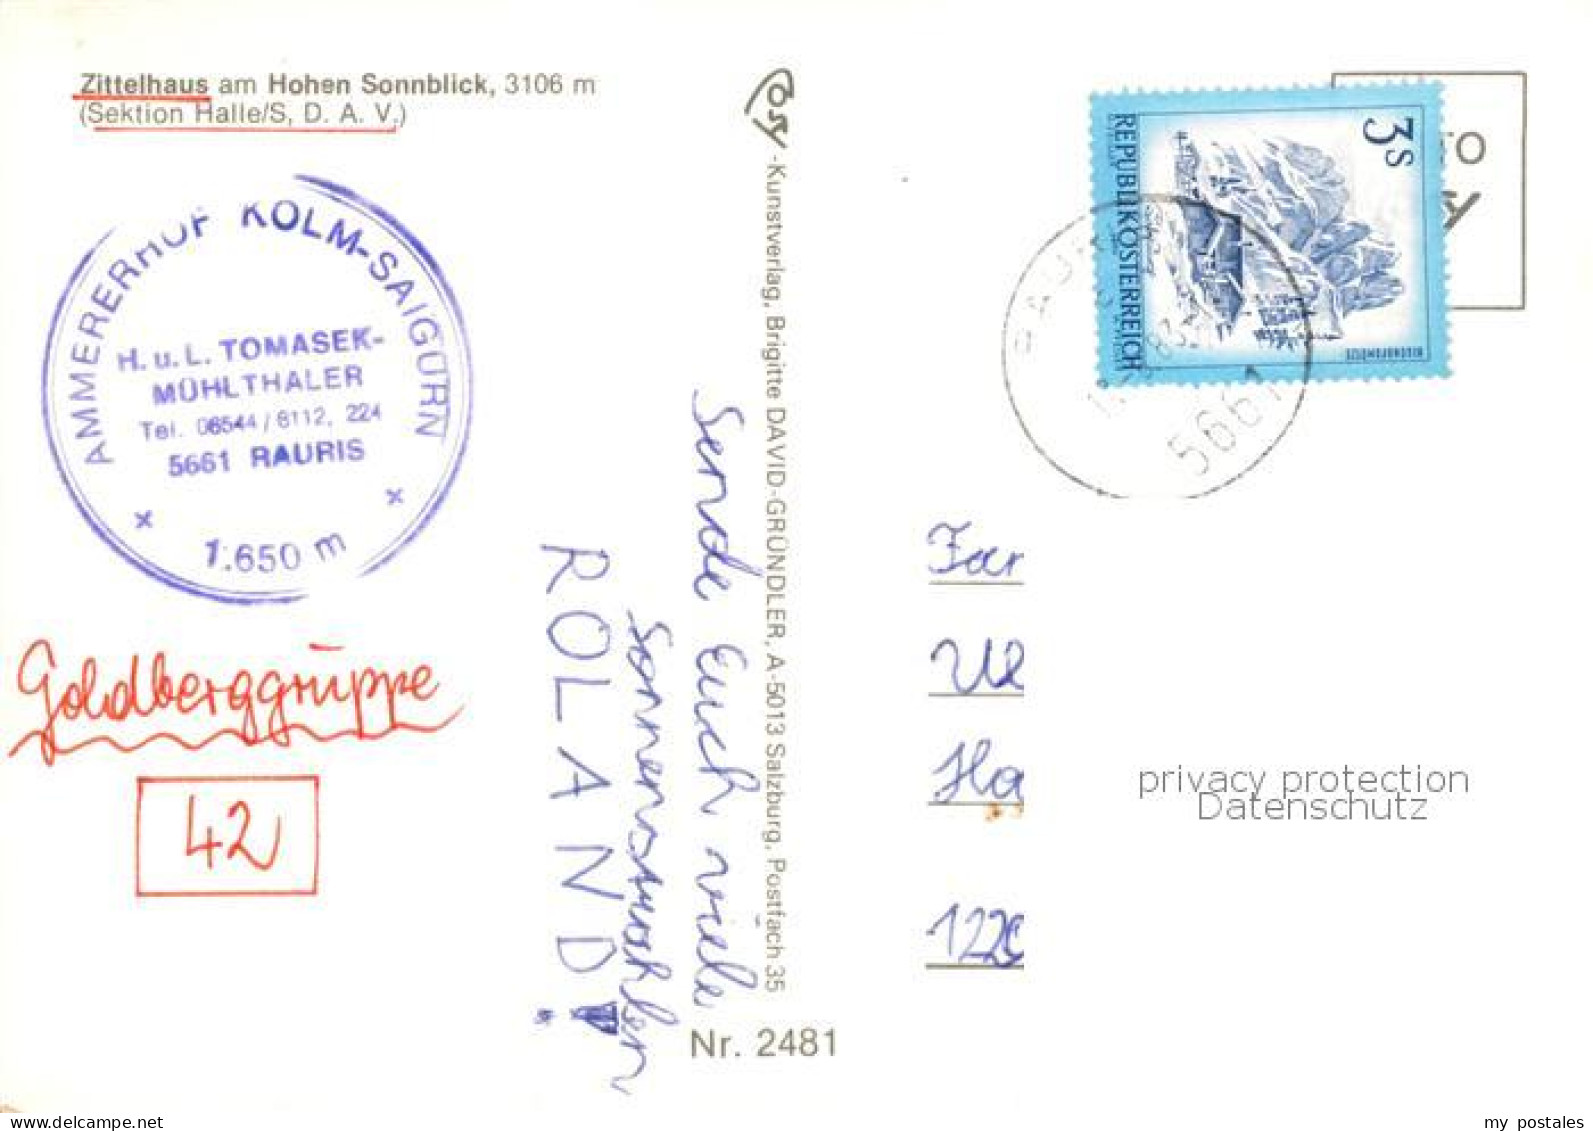 Zittelhaus am Hohen Sonnblick, 3106 m
(Sektion Halle/S, D. A. V.)
AMMERERHOF KOLM-SAIGURN
H. u. L. TOMASEK-
MÜHLTHALER
Tel. 06544/8112, 224
5661 RAURIS
x x
1.650 m
Goldberggruppe
42
Sende Euch viele
Sonnenstrahlen
ROLAND!
-Kunstverlag, Brigitte DAVID-GRÜNDLER, A-5013 Salzburg, Postfach 35
Nr. 2481
3 S
REPUBLIK ÖSTERREICH
BISCHOFSMÜTZE
5661
Ha
122
privacy protection
Datenschutz
my postales